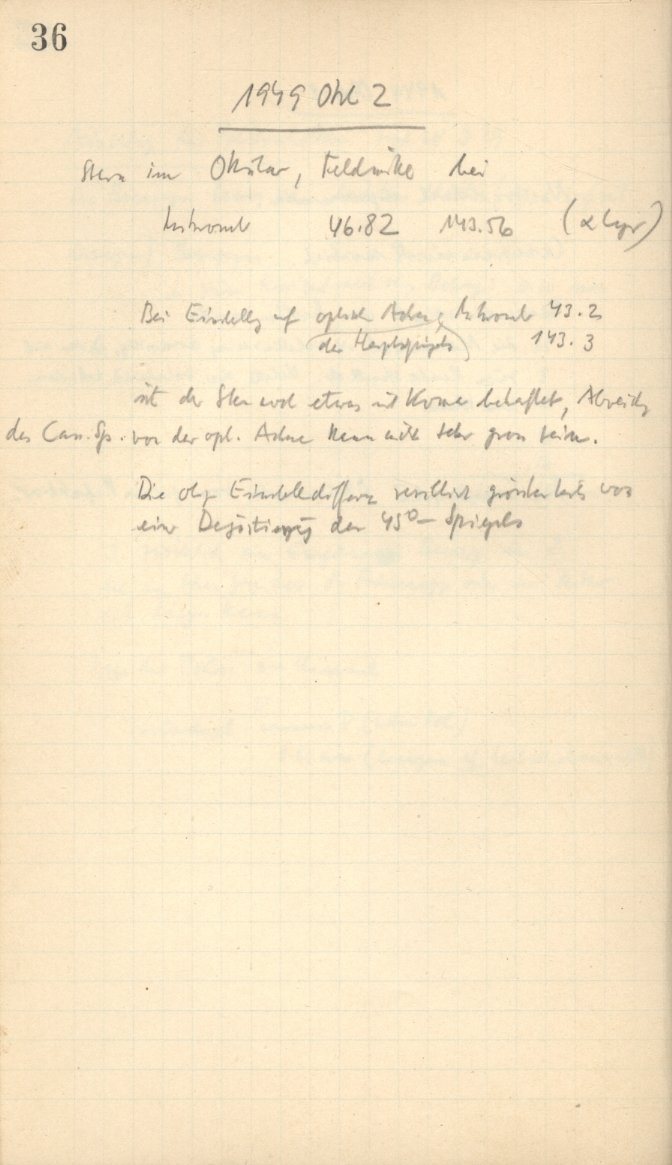 36
1949 Okt 2
Stern im Okular, Feldmitte bei
46.82 143.56 (α Lyr)
Bei Einstellg auf optische Achse, 43.2
des Hauptspiegels 143.3
ist der Stern wohl etwas mit Koma behaftet, Abweichg
des Cass. Sp. von der opt. Achse kann nicht sehr gross sein.
Die obige Einstelldifferenz resultiert grösstenteils von
einer Dejustierung des 45°-Spiegels